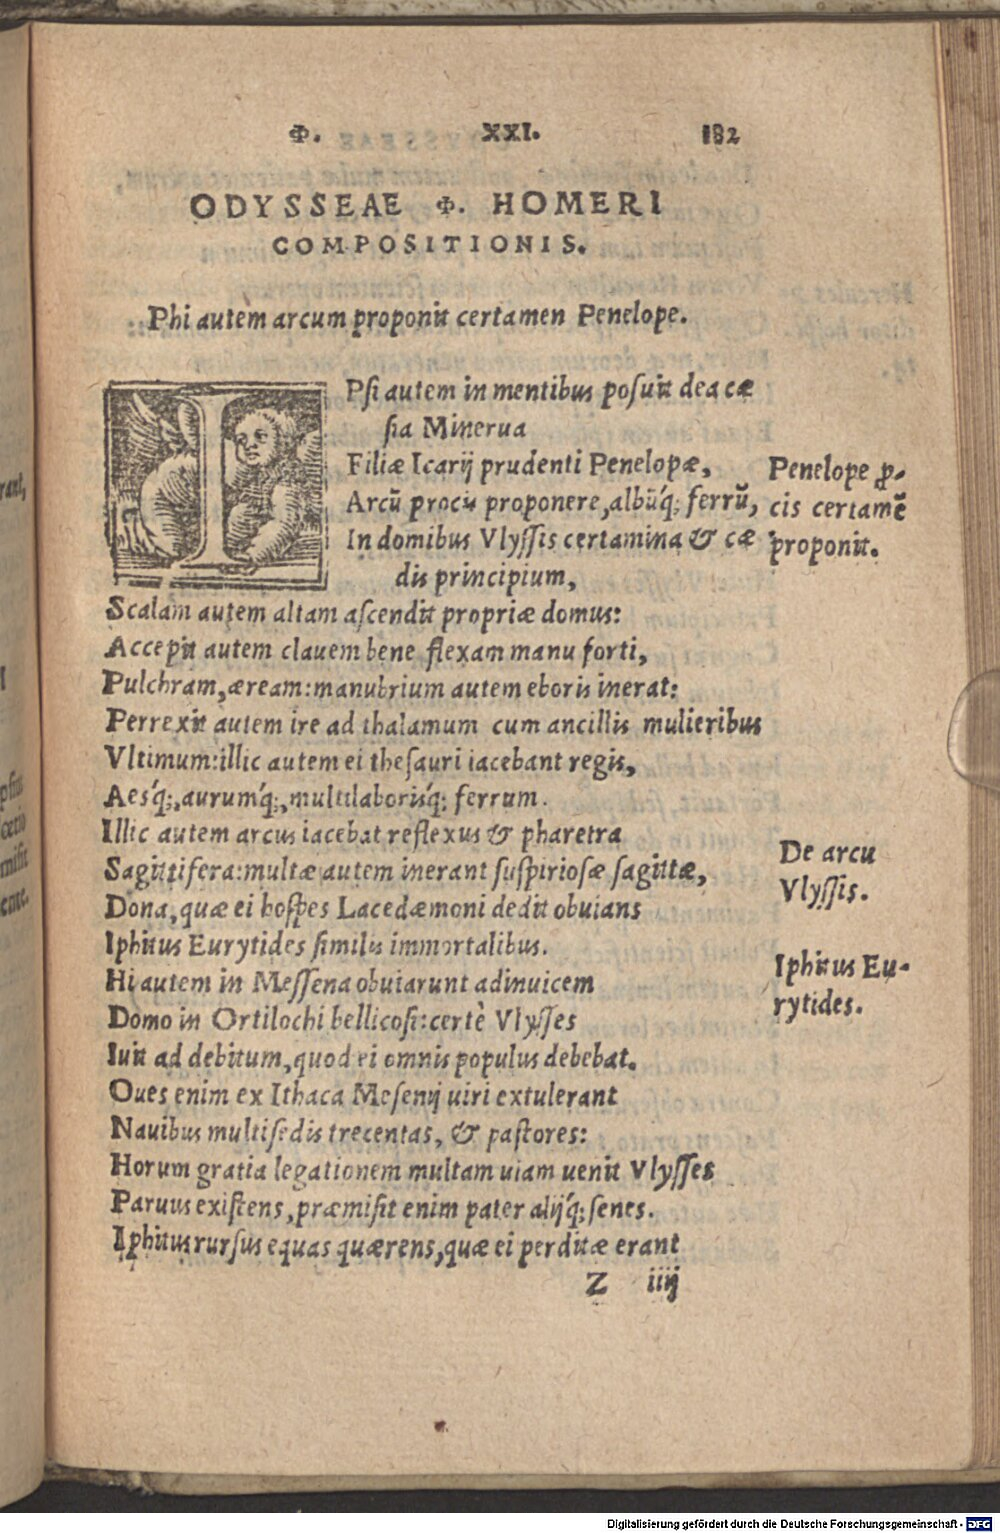 Φ. XXI. 182
ODYSSEAE Φ. HOMERI
COMPOSITIONIS.
Phi autem arcum proponit certamen Penelope.
IPſi autem in mentibus poſuit dea cæ
ſia Minerua
Filiæ Icarij prudenti Penelopæ,
Arcũ procis proponere, albũq́; ferrũ,
In domibus Vlyſſis certamina & cæ
dis principium,
Penelope ꝓ-
cis certamẽ
proponit.
Scalam autem altam aſcendit propriæ domus:
Accepit autem clauem bene flexam manu forti,
Pulchram, æream: manubrium autem eboris inerat:
Perrexit autem ire ad thalamum cum ancillis mulieribus
Vltimum: illic autem ei theſauri iacebant regis,
Aesq́;, aurumq́;, multilaborisq́; ferrum.
Illic autem arcus iacebat reflexus & pharetra
Sagittifera: multæ autem inerant ſuſpirioſæ ſagittæ,
Dona, quæ ei hoſpes Lacedæmoni dedit obuians
De arcu
Vlyſſis.
Iphitus Eurytides ſimilis immortalibus.
Hi autem in Meſſena obuiarunt adinuicem
Domo in Ortilochi bellicoſi: certè Vlyſſes
Iphitus Eu-
rytides.
Iuit ad debitum, quod ei omnis populus debebat.
Oues enim ex Ithaca Meſenij uiri extulerant
Nauibus multiſedis trecentas, & paſtores:
Horum gratia legationem multam uiam uenit Vlyſſes
Paruus exiſtens, præmiſit enim pater alijq́; ſenes.
Iphitus rurſus equas quærens, quæ ei perditæ erant
Z iiij
Digitalisierung gefördert durch die Deutsche Forschungsgemeinschaft - DFG